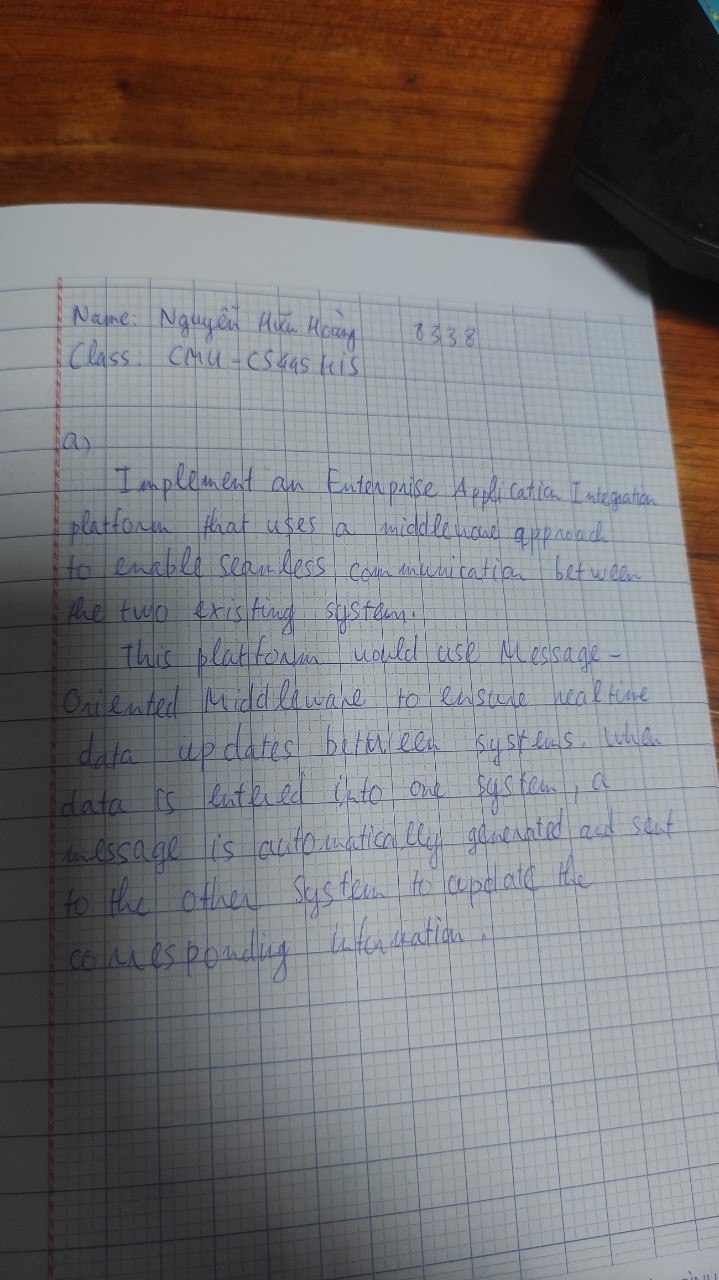 Name: Nguyễn Hữu Hoàng 8338
Class: CMU-CS445 HIS
a)
Implement an Enterprise Application Integration
platform that uses a middleware approach
to enable seamless communication between
the two existing system.
This platform would use Message-
Oriented Middleware to ensure realtime
data updates between systems. When
data is entered into one system, a
message is automatically generated and sent
to the other system to update the
corresponding information.